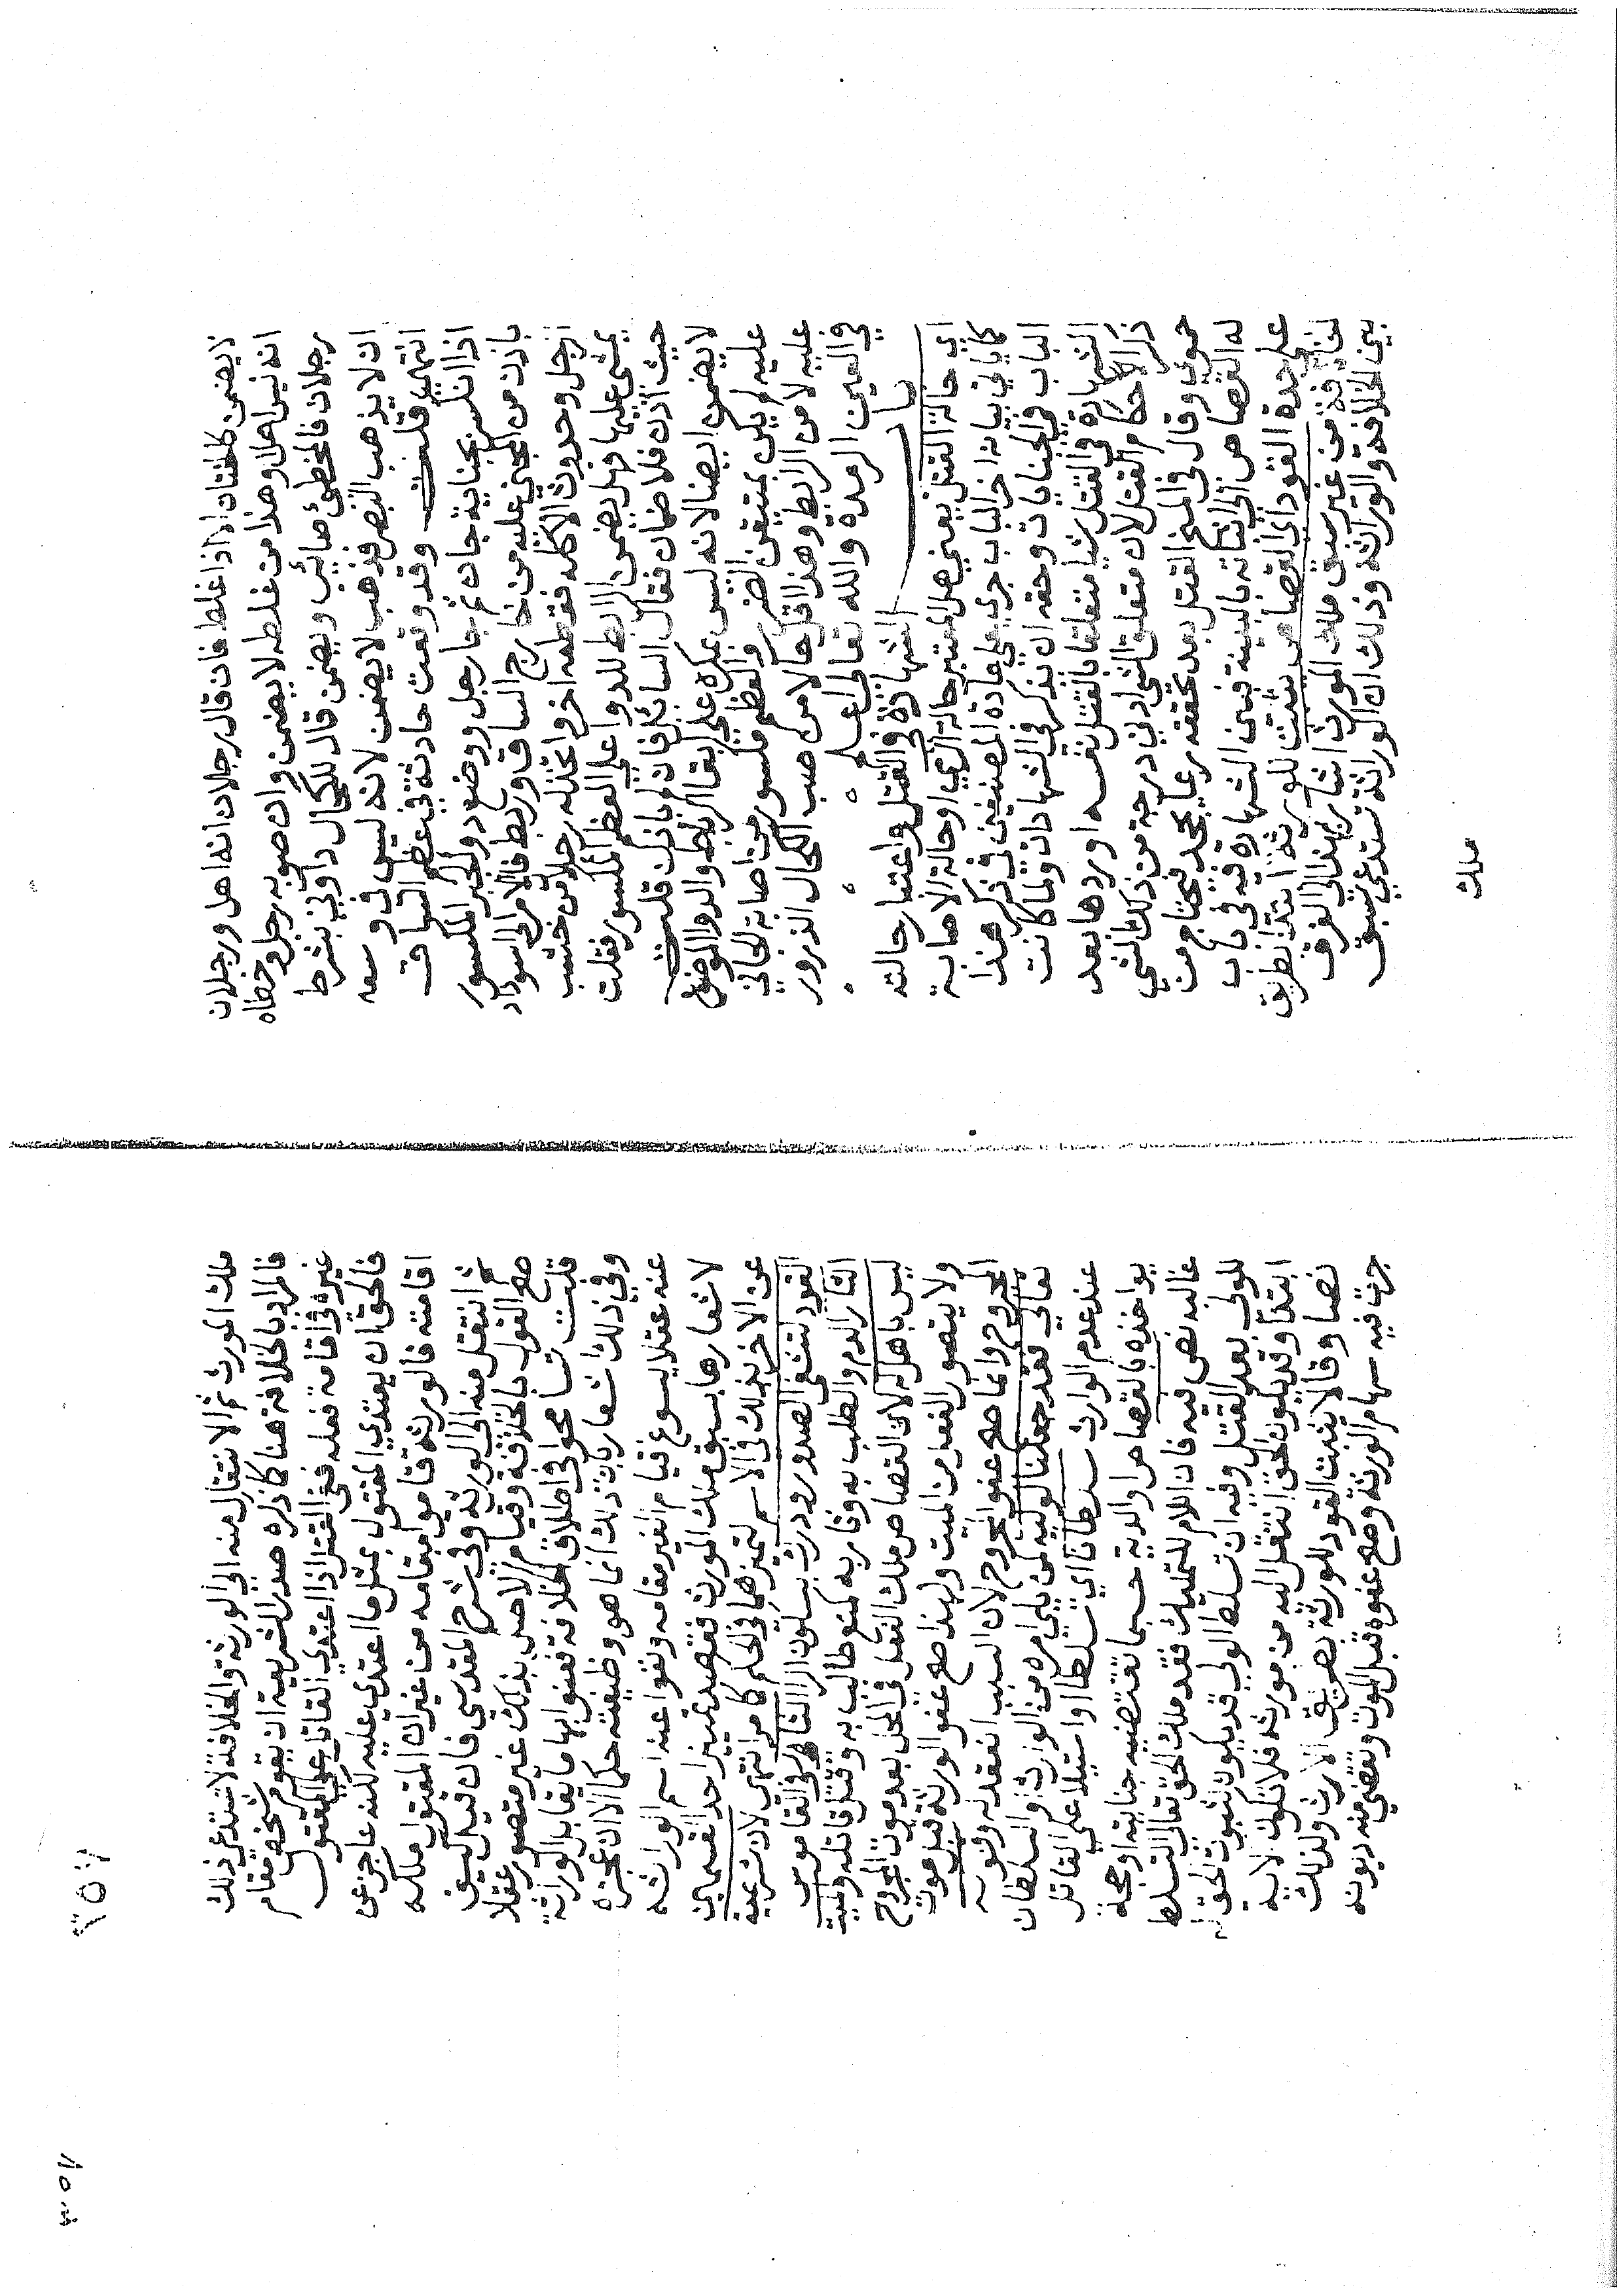 لا يضمن كالختان الا اذا غلط فان قال رجلان انه اهل ورجلان
انه ليس اهلا وهذا من غلطه لا يضمن وان صوبه رجل وخطاه
رجلان فالمخطئ صائب ويضمن قال للكحال داوني بشرط
ان لا يذهب البصر فذهب لا يضمن لانه ليس في وسعه
انتهي قلت وقد وقعت حادثة في عظم الساق
اذا انكسر بجناية جان ثم جا رجل ووضع دوا لجبر المكسور
باذن من المجني عليه من خارج الساق وربط فالامر الى اسوداد
الرجل وحدوث الاكلة فقطعه اخر واتخذ له رجلا من خشب
يمشي عليها فهل يضمن الرابط للدوا علي العظم المكسور فقلت
حيث اذن فلا ضمان فقال السائل فان لم ياذن قلت
لا يضمن ايضا لانه ليس بمكره علي ابقا الربط والدوا الموضوع
عليه لم يكن بمتيقن الضرر والعظم مكسور من اصابة الجاني
عليه لا من الرابط وهذا اقل حالا من صب الكحال الذرور
في العين الرمدة والله تعالى اعلم
باب الشهادة في القتل واعتبار حالته
اي حالة القتل يعني هل المعتبر حالة الرمي او حالة الاصابة
كما ياتي بيانه اخر الباب جري علي عادة المصنفين في ذكر هذا
الباب في الجنايات وحقه ان يذكر في الشهادات ولما كانت
الشهادة في القتل شيا متعلقا بالقتل نفسه اوردها بعد
ذكر الاحكام القتل لان متعلق الشي ادني درجة من ذلك الشي
حموي وقال في المنح القتل بعد تحققه ربما يجحد فيحتاج من
له القصاص الي اثباته بالبينة فبين الشهادة فيه في باب
علي حدة القود اي القصاص يثبت للورثة ابتدا بطريق
الخلافة من غير سبق ملك المورث اشار بهذا الي الفرق
بين الخلافة والوراثة وذلك ان الوراثة تستدعي سبق
ملك
ملك المورث ثم الانتقال منه الي الورثة والخلافة لا تستدعي ذلك
فالمراد بالخلافة هنا كما ذكره صدر الشريعة ان يقوم شخص مقام
غيره في اقامة فعله ففي القتل اذا اعتدي القاتل علي المقتول
فالحق ان يعتدي المقتول بمثل ما اعتدي عليه لكنه عاجز عن
اقامته فالورثة قاموا مقامه من غير ان المقتول ملكه
ثم انتقل منه الى الورثة وفي شرح المقدسي فان قيل كيف
صح القول بالخلافة وقيام الاصل بذلك غير متصور عقلا
قلت تسامحوا في اطلاق الخلافة فعنوا بها ما يقابل الوراثة
وفي ذلك اشعار بان ذلك انما هو وظيفته حكما الا ان عجزه
عنه عقلا يسوغ قيام الغير مقامه ونفوا عنه اسم الوراثة
لاشعارها بسبق ملك المورث فقصد تمييز احد القسمين
عن الاخر بذلك في الاسم لتميزهما في الحكم كما مر انتهى لان شرعية
القود لتشفي الصدور ودرك بسكون الرا الثار في القاموس
الثار الدم والطلب به وثار به كمنع طالب به وقتل قاتله والميت
ليس باهل له لان القصاص ملك الفعل في المحل بعد موت المجروح
ولا يتصور الفعل من الميت ولهذا صح عفو الورثة قبل موت
المجروح وانما صح عفو المجروح لان السبب انعقد له وقوله
تعالي فقد جعلنا لوليه لمن يلي امره من الوارث او السلطان
عند عدم الوارث سلطانا اي تسلطا واستيلا علي القاتل
يواخذه بالقصاص او الدية حسبما تقتضيه جنايته او حجة
غالبه نص فيه فان اللام للتمليك فقد ملك الحق تعالى التسلط
للولي بعد القتل وفيه ان تسلط الولي قد يكون لثبوت الحق له
ابتدا وقد يكون لحق انتقل اليه من مورثه فلا تكون الاية
نصا وقالا يثبت القود للورثة بطريق الارث ولذلك
جرت فيه سهام الورثة وصح عفوه قبل الموت وتقضي منه ديونه